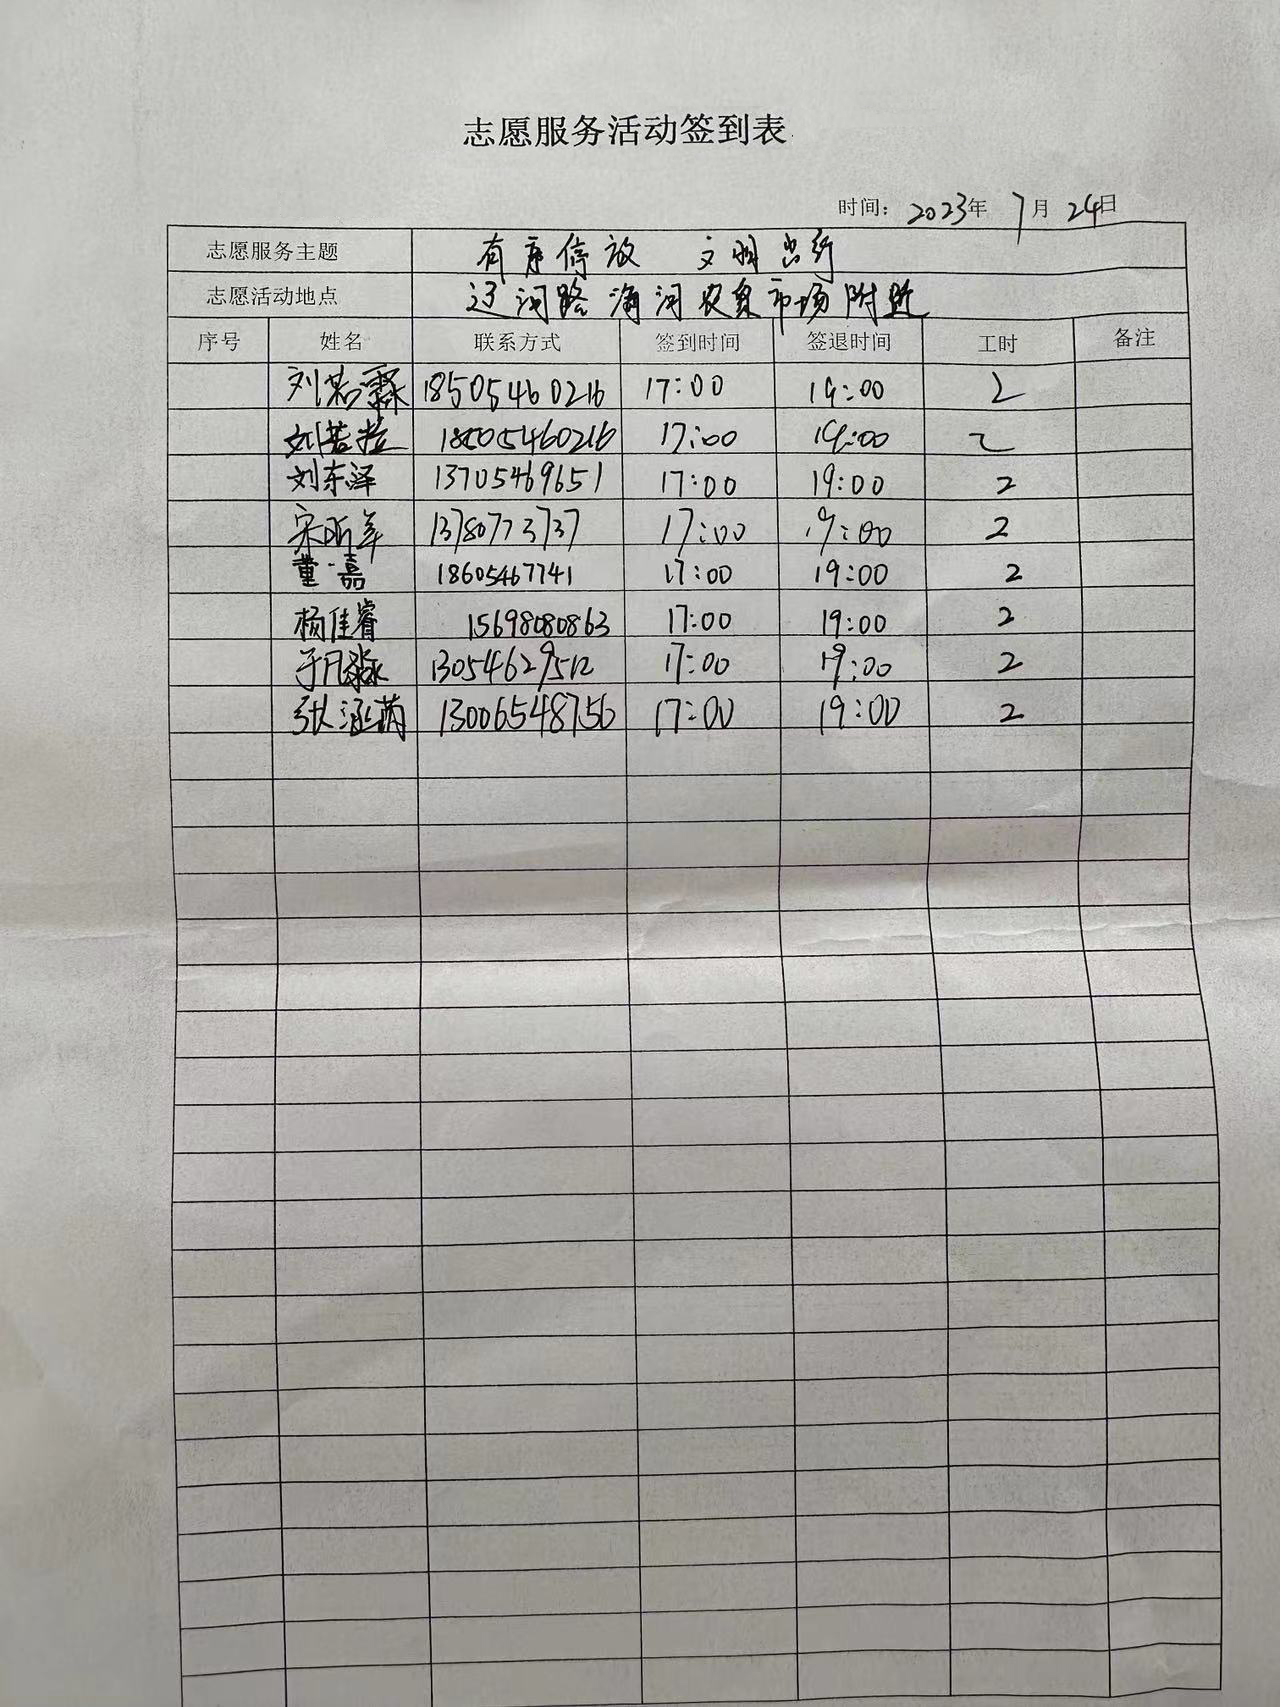 志愿服务活动签到表
时间：2023年 7月 24日
志愿服务主题 有序停放 文明出行
志愿活动地点 辽河路海河农贸市场附近
序号 姓名 联系方式 签到时间 签退时间 工时 备注
刘若霖 18505460216 17:00 19:00 2
刘若拉 18505460216 17:00 19:00 2
刘东泽 13705469651 17:00 19:00 2
宋昕羊 13780773737 17:00 19:00 2
董一嘉 18605467741 17:00 19:00 2
杨佳睿 15698080863 17:00 19:00 2
于凡淼 13054629512 17:00 19:00 2
张涵茵 13006548756 17:00 19:00 2